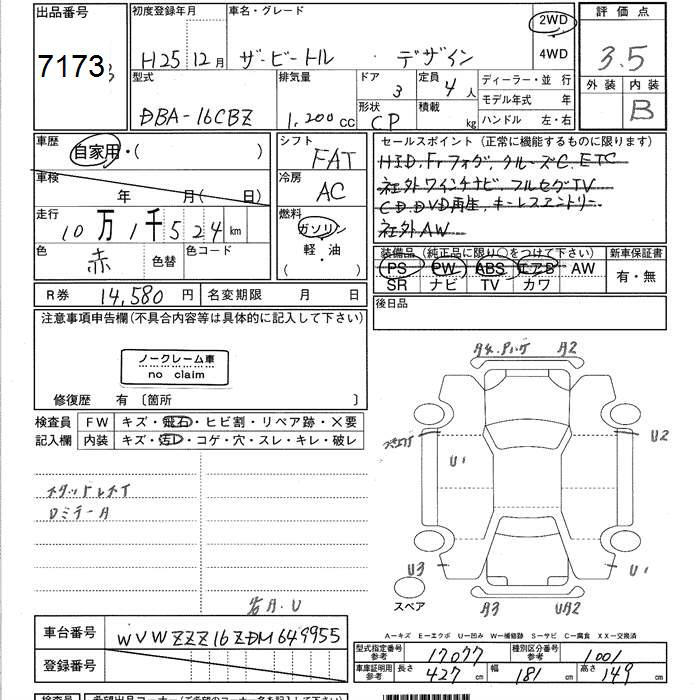 出品番号 初度登録年月 車名・グレード 2WD 評価点
7173 H25 12月 ザ・ビートル デザイン 4WD 3.5
型式 排気量 ドア 3 定員 4人 ディーラー・並行 外装 内装
DBA-16CBZ 1,200cc 形状 CP 積載 kg モデル年式 年 B
ハンドル 左・右
車歴 自家用・( ) シフト FAT セールスポイント (正常に機能するものに限ります)
HID, Frフォグ, クルーズC, ETC
車検 年 月( 日) 冷房 AC 社外ワインチナビ, フルセグTV
CD, DVD再生, キーレスエントリー
走行 10万1千524km 燃料 ガソリン 社外AW
色 赤 色替 色コード 軽・油 装備品 (純正品に限り○をつけて下さい) 新車保証書
( ・ ) PS PW ABS エアB AW 有・無
R券 14,580円 名変期限 月 日 SR ナビ TV カワ
後日品
注意事項申告欄(不具合内容等は具体的に記入して下さい)
ノークレーム車
no claim
A2
修復歴 有〔箇所 〕
検査員 FW キズ・飛石・ヒビ割・リペア跡・×要
記入欄 内装 キズ・汚レ・コゲ・穴・スレ・キレ・破レ
U2
U1
U3 U1
スペア A3 UA2
A.U
A−キズ E−エクボ U−凹み W−補修跡 S−サビ C−腐食 XX−交換済
車台番号 WVWZZZ16ZDM649955
型式指定番号 参考 17077 種別区分番号 参考 1001
登録番号 車庫証明用 参考 長さ 427cm 幅 181cm 高さ 149cm
検査員 希望出品コーナー(ご希望のコーナー名を記入